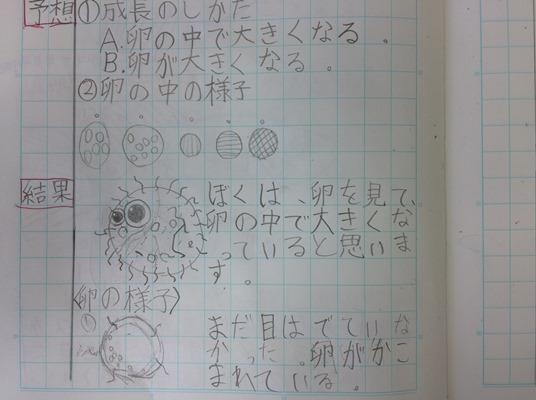 予想 ①成長のしかた
A.卵の中で大きくなる。
B.卵が大きくなる。
②卵の中の様子
結果 ぼくは、卵を見て、
卵の中で大きくな
っていると思いま
す。
〈卵の様子〉
まだ目はでていな
かった。卵がかこ
まれている。